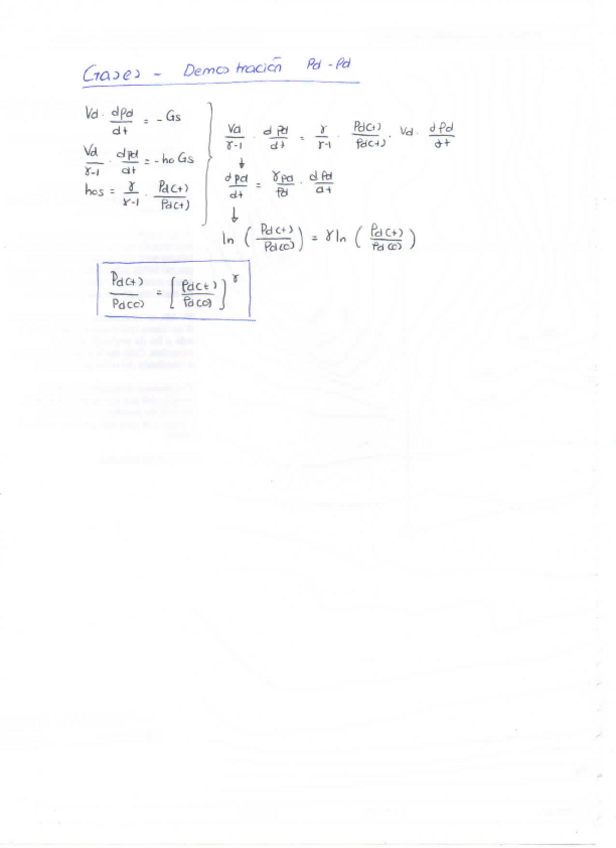 Gases - Demostración Pd - ρd
Vd · dρd/dt = - Gs
Vd/γ-1 · dPd/dt = - ho Gs
hos = γ/γ-1 · Pd(t)/ρd(t)
Vd/γ-1 · dPd/dt = γ/γ-1 · Pd(t)/ρd(t) · Vd · dρd/dt
↓
dPd/dt = γPd/ρd · dρd/dt
↓
ln (Pd(t)/Pd(0)) = γ ln (ρd(t)/ρd(0))
Pd(t)/Pd(0) = [ρd(t)/ρd(0)]^γ